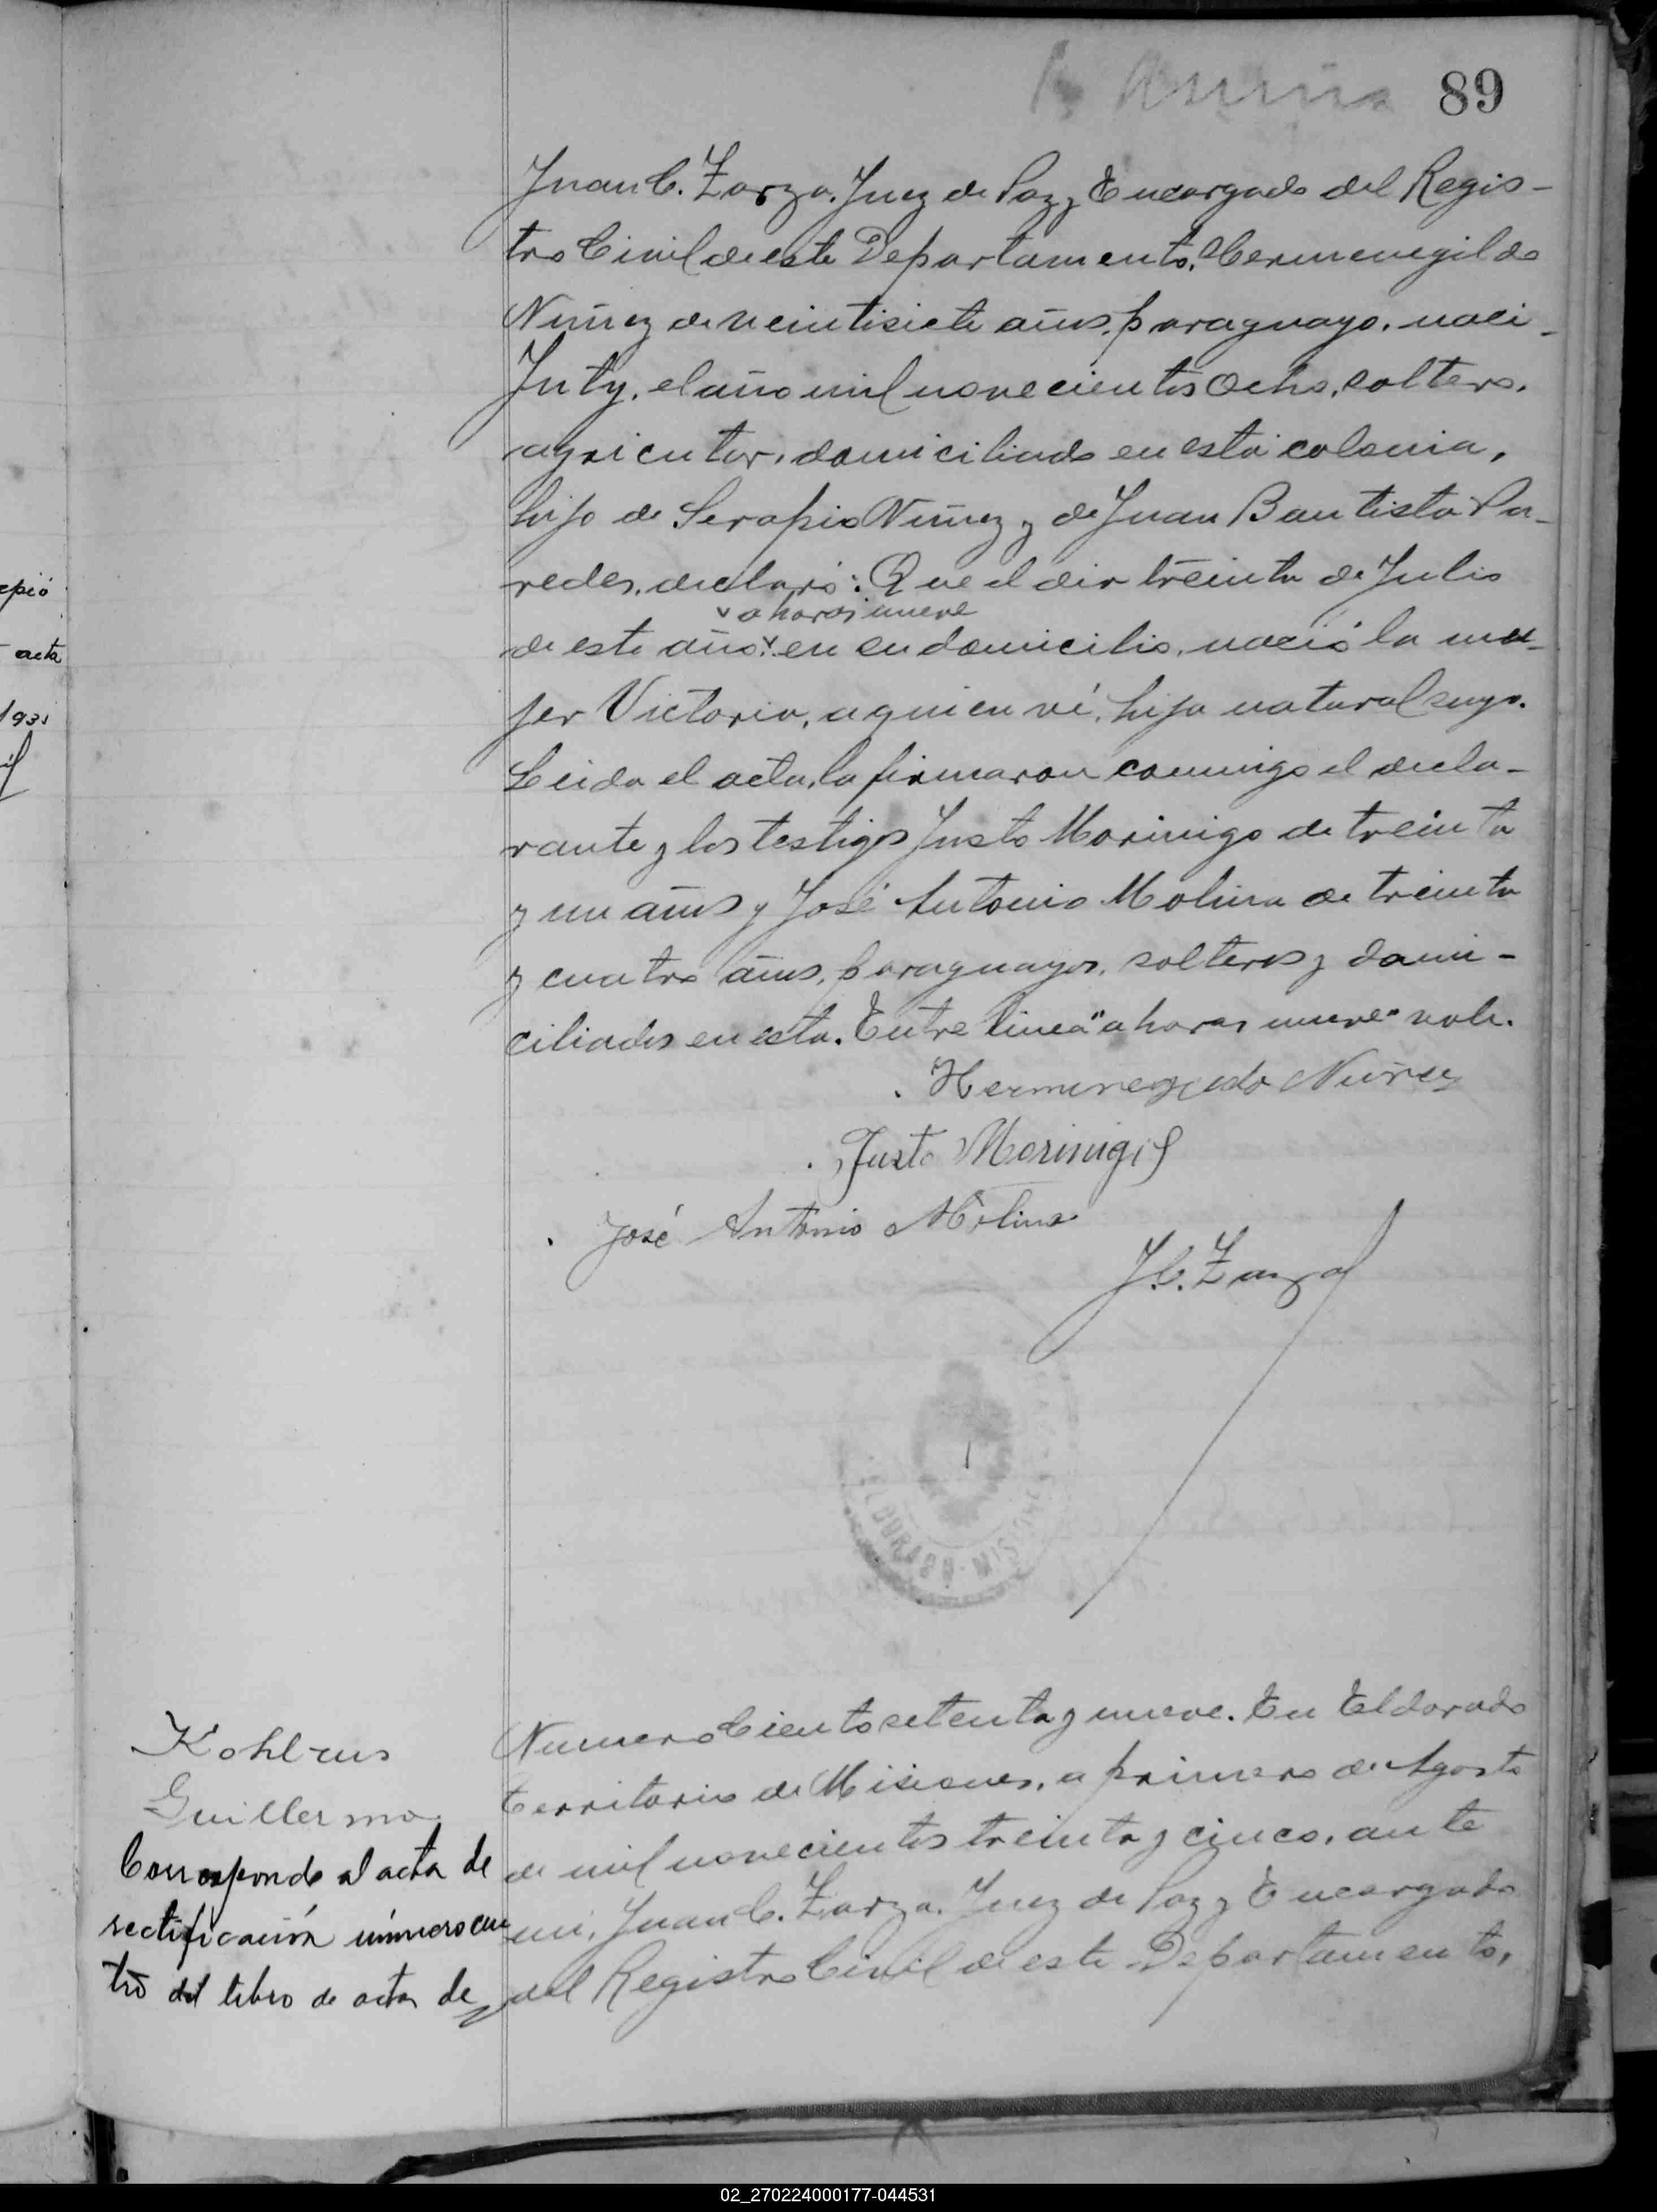 89
Juan C. Zarza, Juez de Paz y Encargado del Regis-
tro Civil de este Departamento, Hermenegildo
Nuñez de veintisiete años, paraguayo, naci-
Juty, el año mil novecientos ocho, soltero,
agricutor, domiciliado en esta colonia,
hijo de Serapio Nuñez y de Juan Bautista Pa-
redes, declaró: Que el dia treinta de Julio
a horas nueve
de este año en su domicilio, nació la mu-
jer Victoria, a quien ví, hija natural suya.
Leida el acta, la firmaron conmigo el decla-
rante y los testigos Justo Morinigo de treinta
y un años y José Antonio Molina de treinta
y cuatro años, paraguayos, solteros y domi-
ciliados en esta. Entre linea "a horas nueve" vale.
Hermenegildo Nuñez
Justo Morinigo
José Antonio Molina
J.C. Zarza
ELDORADO · MISIONES
Kohlrus
Guillermo
Corresponde al acta de
rectificación número cua
tro del libro de actas de
Numero Ciento setenta y nueve. En Eldorado
Territorio de Misiones, a primero de Agosto
de mil novecientos treinta y cinco, ante
mi, Juan C. Zarza, Juez de Paz y Encargado
del Registro Civil de este Departamento,
epió
acta
193
02_270224000177-044531